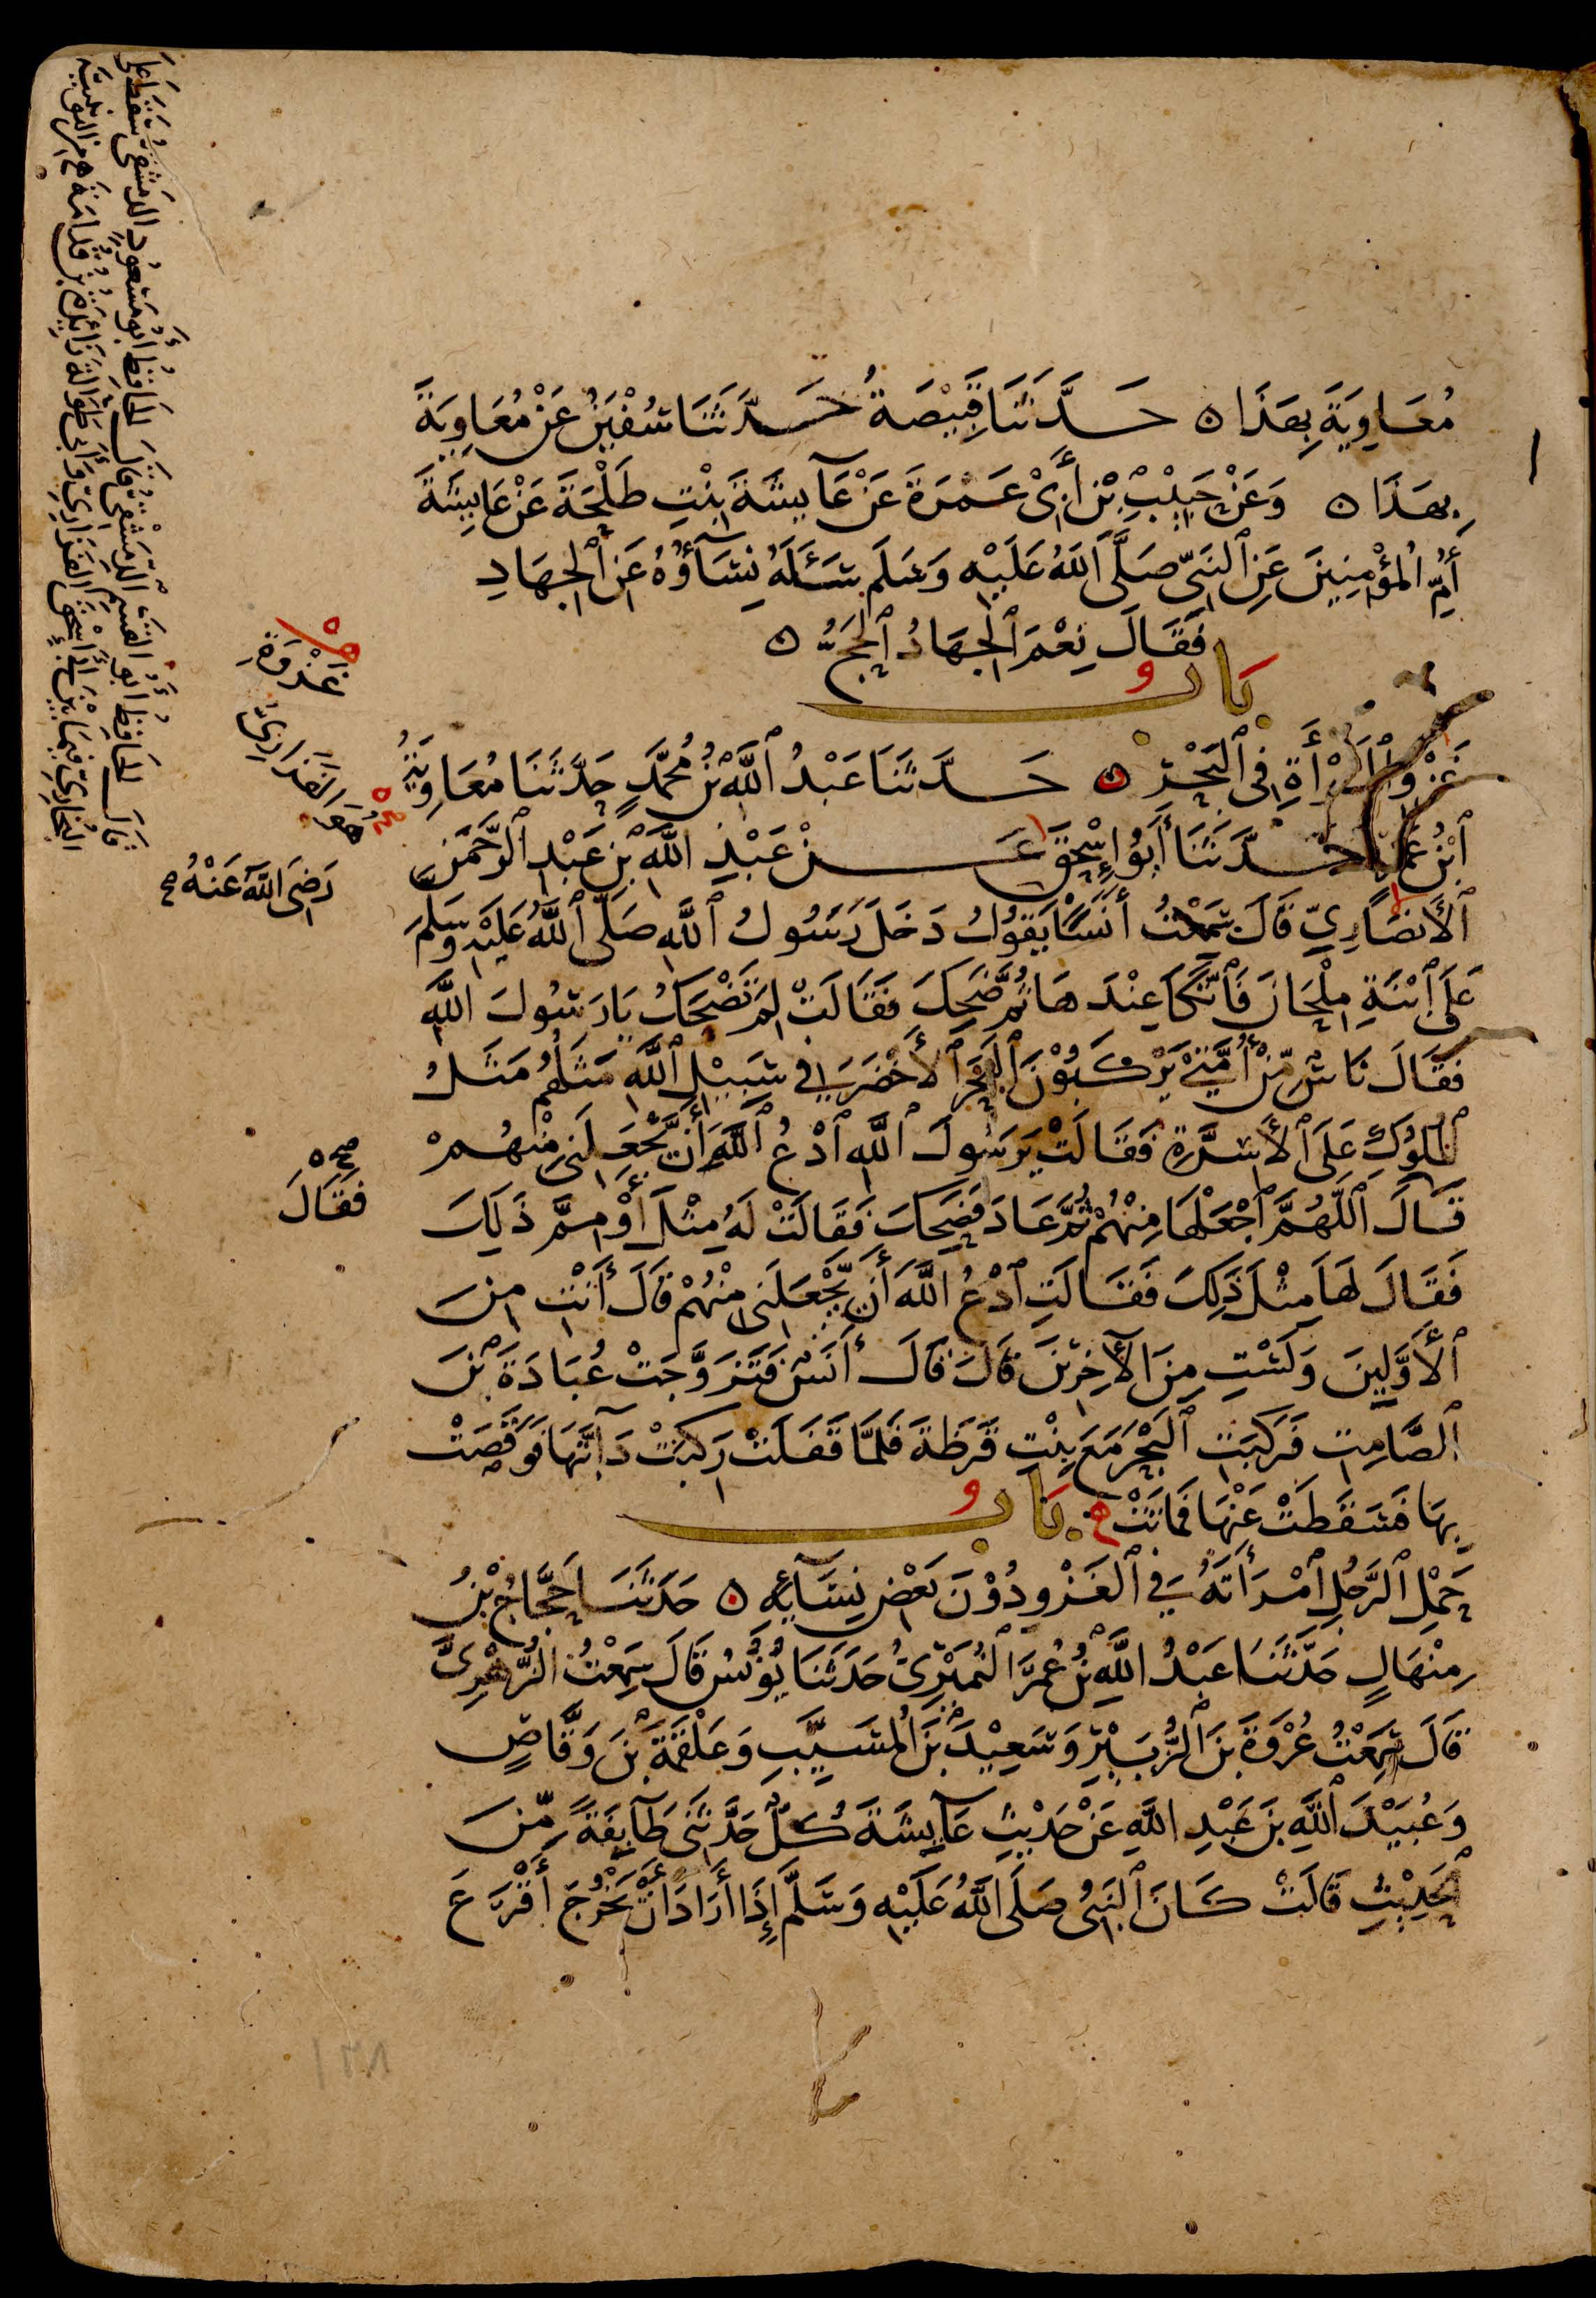 مُعَاوِيَةَ بِهَذَا ۞ حَدَّثَنَا قَبِيْصَةُ حَدَّثَنَا سُفْيٰنُ عَنْ مُعَاوِيَةَ
بِهَذَا ۞ وَعَنْ حَبِيْبِ بْنِ أَبِىْ عَمْرَةَ عَنْ عَآيِشَةَ بِنْتِ طَلْحَةَ عَنْ عَايِشَةَ
أُمِّ الْمُؤْمِنِينَ عَنِ النَّبِيِّ صَلَّى اللَّهُ عَلَيْهِ وَسَلَّمَ سَئَلَهُ نِسَآؤُهُ عَنِ الْجِهَادِ
فَقَالَ نِعْمَ الْجِهَادُ الْحَجُّ ۞
بَابُ
غَزْوِ الْمَرْأَةِ فِي الْبَحْرِ ۞ حَدَّثَنَا عَبْدُ اللَّهِ بْنُ مُحَمَّدٍ حَدَّثَنَا مُعَاوِيَةُ
ابْنُ عَمْرٍو حَدَّثَنَا أَبُو إِسْحٰقَ عَنْ عَبْدِ اللَّهِ بْنِ عَبْدِ الرَّحْمَنِ
الْأَنْصَارِيِّ قَالَ سَمِعْتُ أَنَسًا يَقُوْلُ دَخَلَ رَسُولُ اللَّهِ صَلَّى اللَّهُ عَلَيْهِ وَسَلَّمَ
عَلَى ابْنَةِ مِلْحَانَ فَاتَّكَأَ عِنْدَهَا ثُمَّ ضَحِكَ فَقَالَتْ لِمَ تَضْحَكُ يَا رَسُولَ اللَّهِ
فَقَالَ نَاسٌ مِّنْ أُمَّتِيْ يَرْكَبُوْنَ الْبَحْرَ الْأَخْضَرَ فِي سَبِيْلِ اللَّهِ مَثَلُهُمْ مَثَلُ
الْمُلُوْكِ عَلَى الْأَسِرَّةِ فَقَالَتْ يَرَسُولَ اللَّهِ ادْعُ اللَّهَ أَنْ يَّجْعَلَنِى مِنْهُمْ
قَالَ اللَّهُمَّ اجْعَلْهَا مِنْهُمْ ثُمَّ عَادَ فَضَحِكَ فَقَالَتْ لَهُ مِثْلَ أَوْ مِمَّ ذَلِكَ
فَقَالَ لَهَا مِثْلَ ذَلِكَ فَقَالَتِ ادْعُ اللَّهَ أَنْ يَّجْعَلَنِى مِنْهُمْ قَالَ أَنْتِ مِنَ
الْأَوَّلِينَ وَلَسْتِ مِنَ الْآخِرِيْنَ قَالَ قَالَ أَنَسٌ فَتَزَوَّجَتْ عُبَادَةَ بْنَ
الصَّامِتِ فَرَكِبَتِ الْبَحْرَ مَعَ بِنْتِ قَرَظَةَ فَلَمَّا قَفَلَتْ رَكِبَتْ دَآبَّتَهَا فَوَقَصَتْ
بِهَا فَسَقَطَتْ عَنْهَا فَمَاتَتْ بَابُ
حَمْلِ الرَّجُلِ امْرَأَتَهُ فِي الْغَزْوِ دُوْنَ بَعْضِ نِسَآيِهِ ۞ حَدَّثَنَا حَجَّاجُ بْنُ
مِنْهَالٍ حَدَّثَنَا عَبْدُ اللَّهِ بْنُ عُمَرَ النُّمَيْرِىُّ حَدَّثَنَا يُوْنُسُ قَالَ سَمِعْتُ الزُّهْرِىَّ
قَالَ سَمِعْتُ عُرْوَةَ بْنَ الزُّبَيْرِ وَسَعِيْدَ بْنَ الْمُسَيَّبِ وَعَلْقَمَةَ بْنَ وَقَّاصٍ
وَعُبَيْدَ اللَّهِ بْنَ عَبْدِ اللَّهِ عَنْ حَدِيْثِ عَآيِشَةَ كُلٌّ حَدَّثَنِى طَآيِفَةً مِّنَ
الْحَدِيْثِ قَالَتْ كَانَ النَّبِىُّ صَلَّى اللَّهُ عَلَيْهِ وَسَلَّمَ إِذَا أَرَادَ أَنْ يَّخْرُجَ أَقْرَعَ
غَزْوَةِ
هُوَ الْفَزَارِىُّ
رَضِىَ اللَّهُ عَنْهُ صح
صح
فَقَالَ
قَالَ الْحَافِظُ أَبُو الْقٰسِمِ الدِّمَشْقِىُّ قَالَ الْحَافِظُ أَبُو مَسْعُوْدٍ الدِّمَشْقِىُّ سَقَطَ عَلَى
الْبُخَارِىِّ فِيمَا بَيْنَ أَبِي إِسْحٰقَ الْفَزَارِىِّ وَأَبِى طَوَالَةَ زَايِدَةُ بْنُ قُدَامَةَ
١
١٣٨